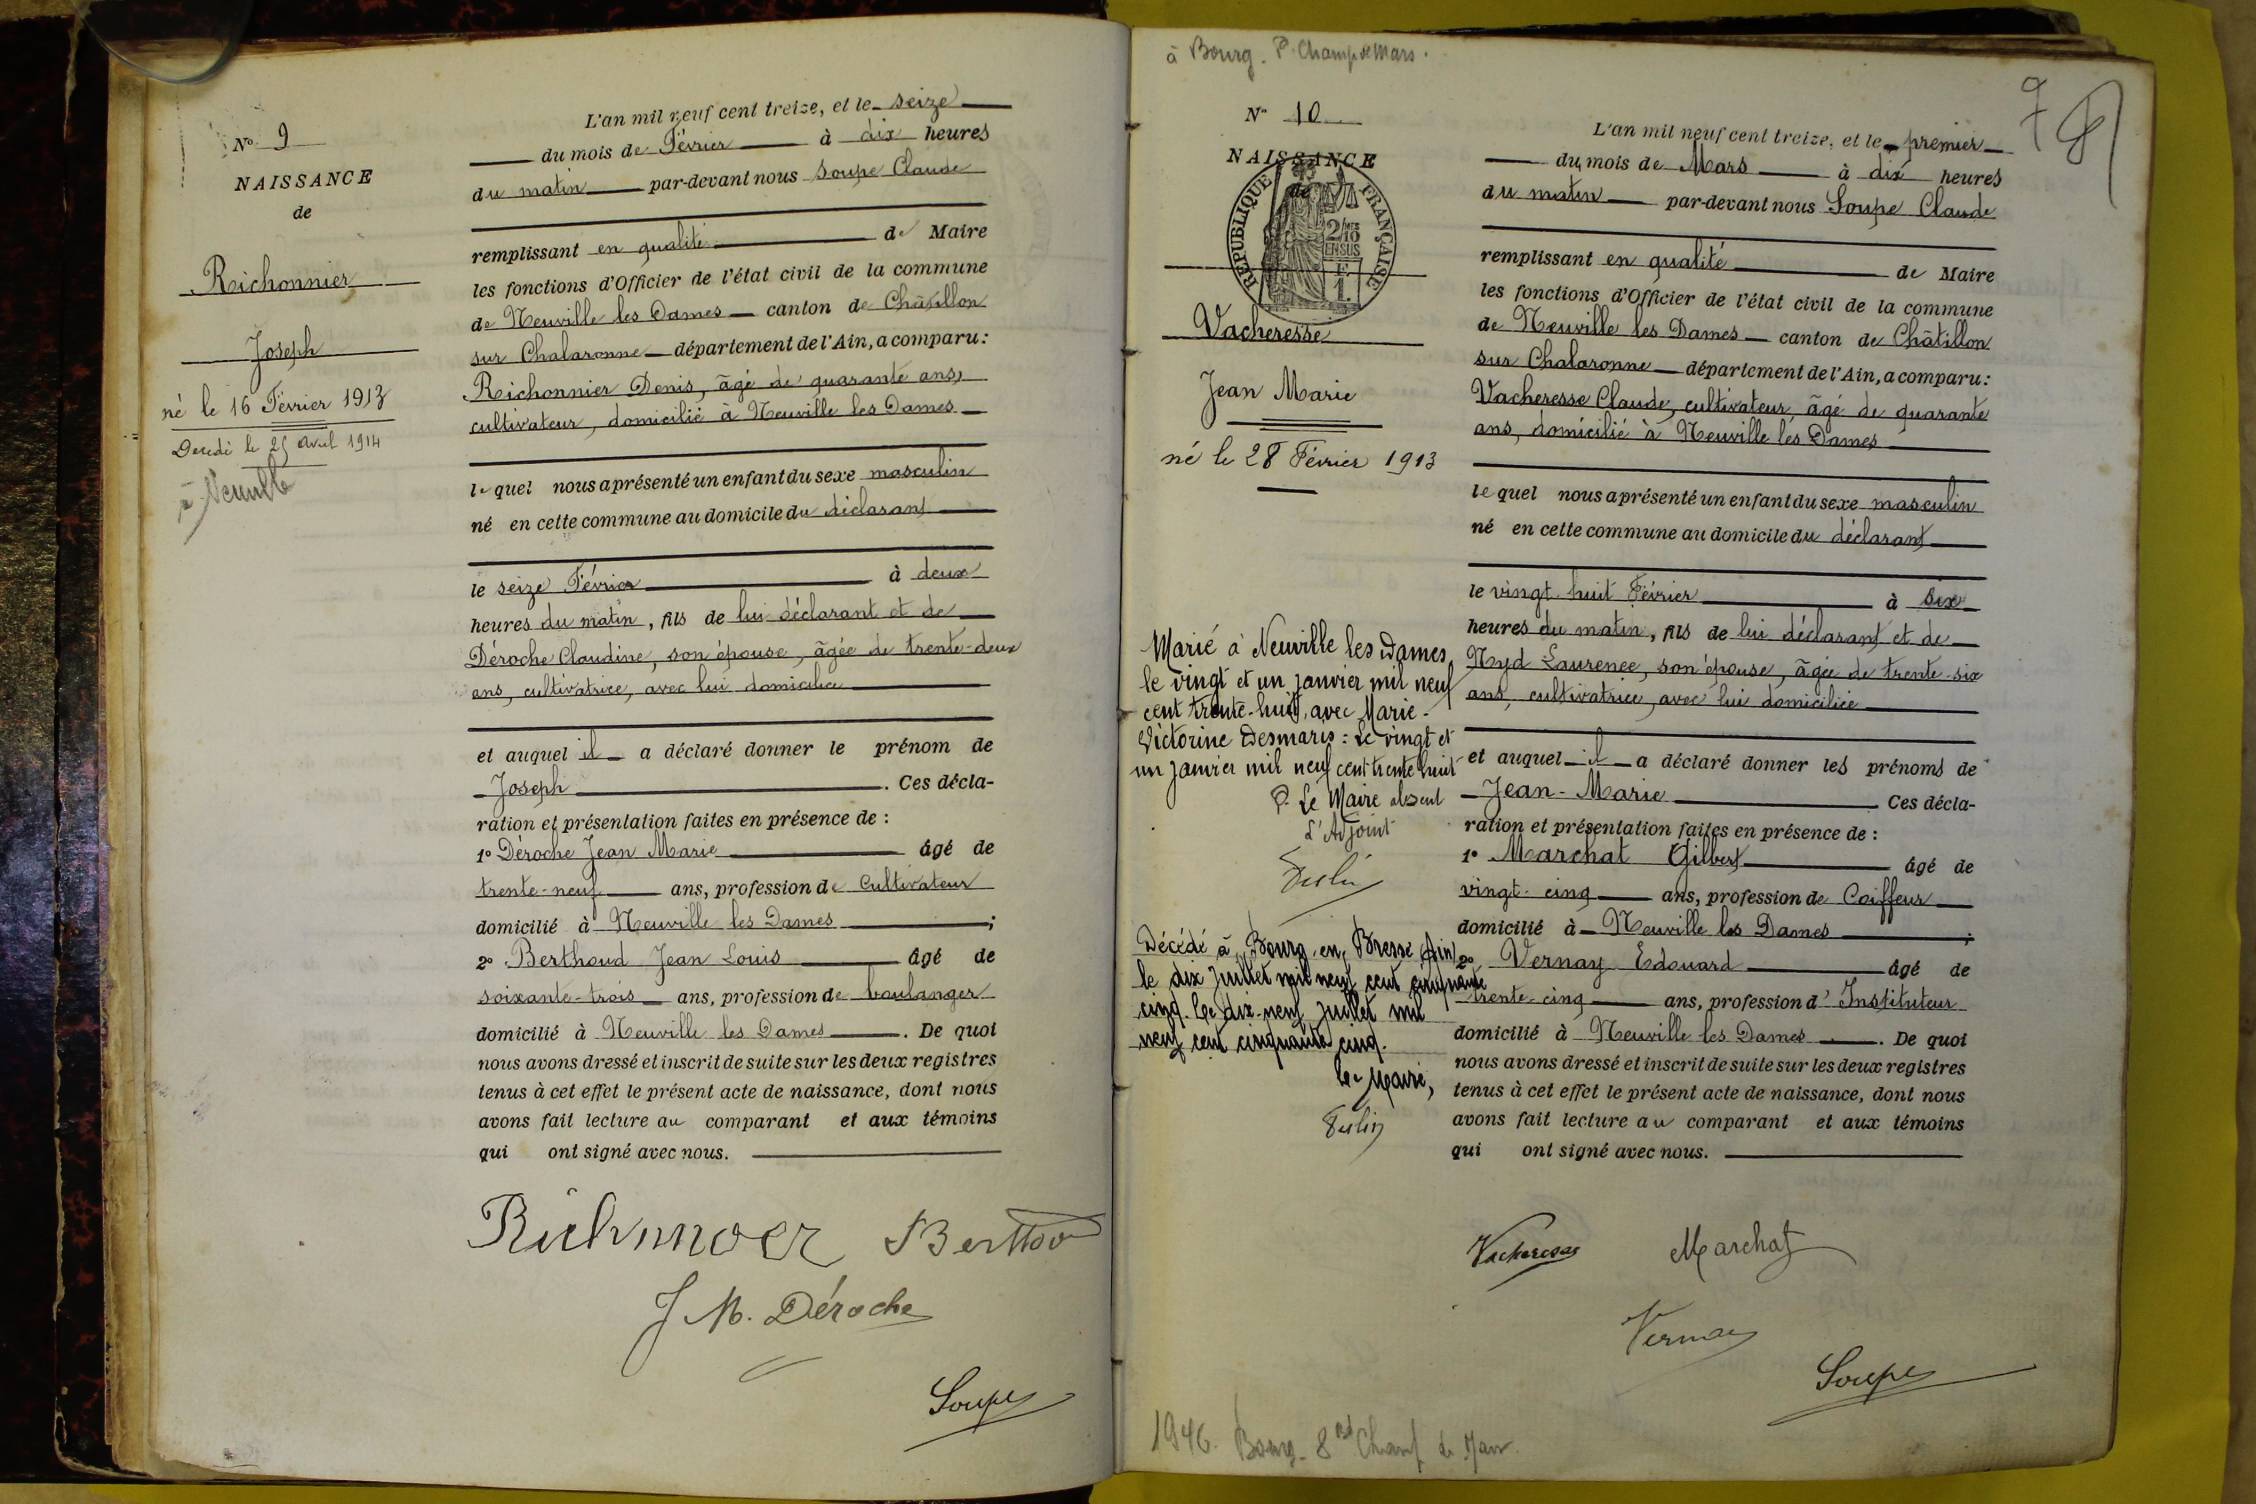 Nº 9
NAISSANCE
de
Richonnier
Joseph
né le 16 Février 1913
Decedé le 25 Avril 1914
à Neuville
L'an mil neuf cent treize, et le seize
du mois de Février à dix heures
du matin par-devant nous Soupe Claude
remplissant en qualité de Maire
les fonctions d'Officier de l'état civil de la commune
de Neuville les Dames canton de Châtillon
sur Chalaronne département de l'Ain, a comparu:
Richonnier Denis, âgé de quarante ans,
cultivateur, domicilié à Neuville les Dames
lequel nous a présenté un enfant du sexe masculin
né en cette commune au domicile du déclarant
le seize Février à deux
heures du matin, fils de lui déclarant et de
Déroche Claudine, son épouse, âgée de trente-deux
ans, cultivatrice, avec lui domiciliée
et auquel il a déclaré donner le prénom de
Joseph. Ces décla-
ration et présentation faites en présence de :
1º Déroche Jean Marie âgé de
trente-neuf ans, profession de Cultivateur
domicilié à Neuville les Dames ;
2º Berthoud Jean Louis âgé de
soixante-trois ans, profession de boulanger
domicilié à Neuville les Dames. De quoi
nous avons dressé et inscrit de suite sur les deux registres
tenus à cet effet le présent acte de naissance, dont nous
avons fait lecture au comparant et aux témoins
qui ont signé avec nous.
J M. Déroche
Soupe
à Bourg. P. Champ de Mars.
7
Nº 10
NAISSANCE
de
REPUBLIQUE FRANÇAISE
2/10
EN SUS
Vacheresse
Jean Marie
né le 28 Février 1913
Marié à Neuville les Dames
le vingt et un janvier mil neuf
cent trente-huit, avec Marie-
Victorine Desmaris : Le vingt et
un janvier mil neuf cent trente huit
P. Le Maire absent
L'Adjoint
Décédé à Bourg-en-Bresse (Ain)
le dix juillet mil neuf cent cinquante
cinq. Le dix-neuf juillet mil
neuf cent cinquante cinq.
Le Maire,
L'an mil neuf cent treize, et le premier
du mois de Mars à dix heures
du matin par-devant nous Soupe Claude
remplissant en qualité de Maire
les fonctions d'Officier de l'état civil de la commune
de Neuville les Dames canton de Châtillon
sur Chalaronne département de l'Ain, a comparu:
Vacheresse Claude, cultivateur, âgé de quarante
ans, domicilié à Neuville les Dames
lequel nous a présenté un enfant du sexe masculin
né en cette commune au domicile du déclarant
le vingt huit Février à six
heures du matin, fils de lui déclarant et de
Nyd Laurence, son épouse, âgée de trente-six
ans, cultivatrice, avec lui domiciliée
et auquel il a déclaré donner les prénoms de
Jean-Marie Ces décla-
ration et présentation faites en présence de :
1º Marchat Gilbert âgé de
vingt-cinq ans, profession de Coiffeur
domicilié à Neuville les Dames ;
2º Vernay Edouard âgé de
trente-cinq ans, profession d'Instituteur
domicilié à Neuville les Dames. De quoi
nous avons dressé et inscrit de suite sur les deux registres
tenus à cet effet le présent acte de naissance, dont nous
avons fait lecture au comparant et aux témoins
qui ont signé avec nous.
Vacheresse Marchat
Vernay
Soupe
1946. Bourg. 8 Bd Champ de Mars.